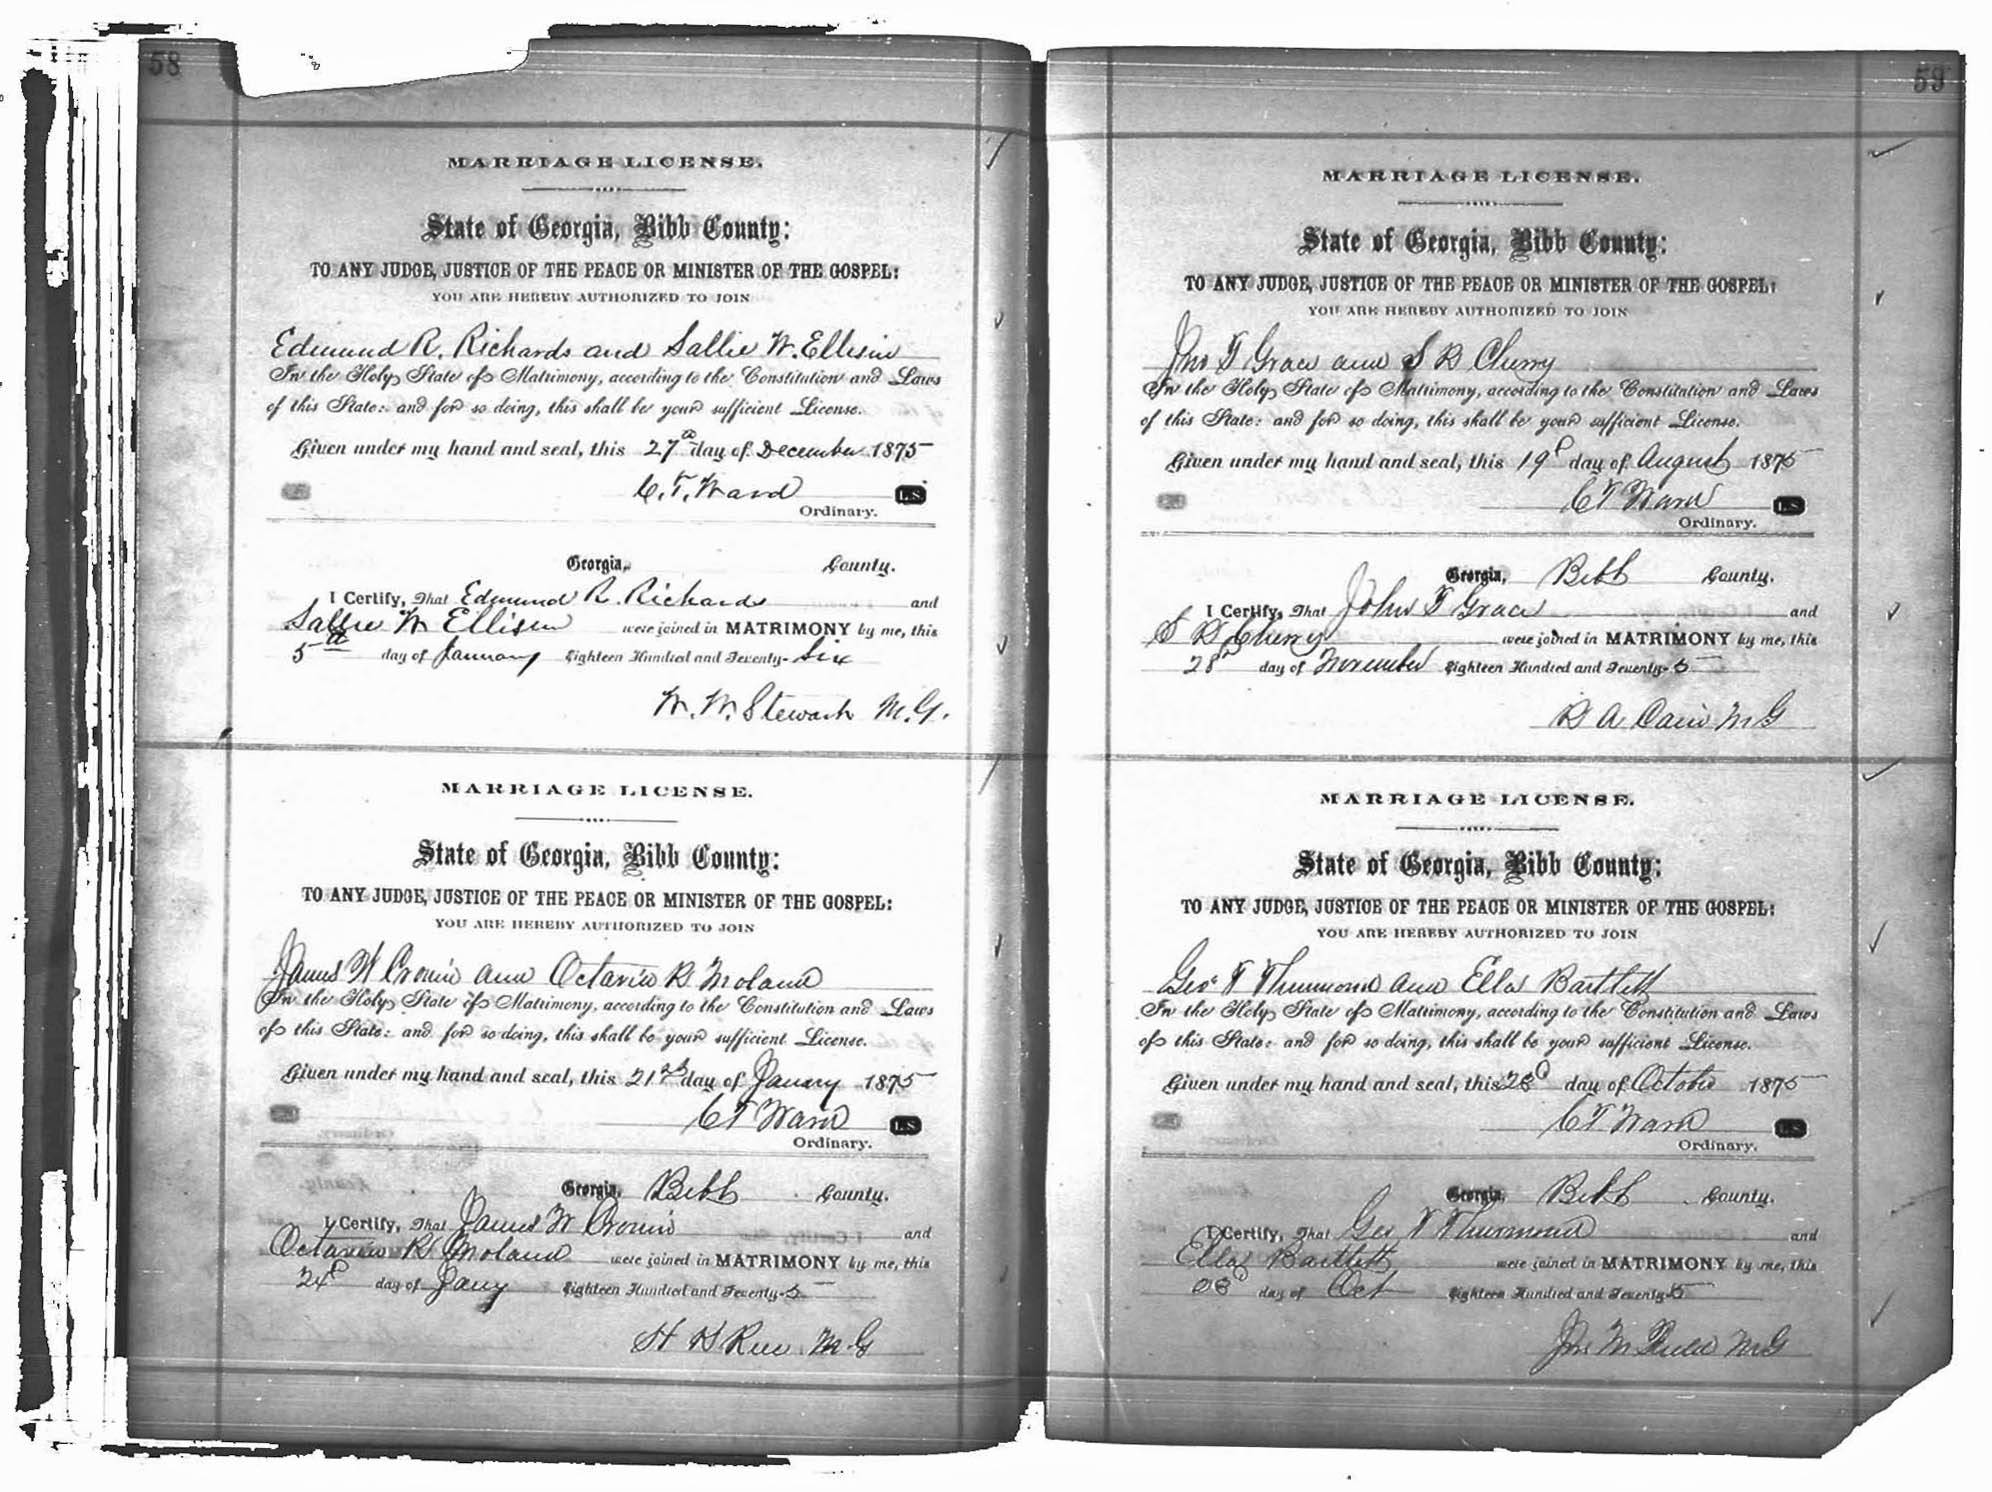 58
MARRIAGE LICENSE.
State of Georgia, Bibb County:
TO ANY JUDGE, JUSTICE OF THE PEACE OR MINISTER OF THE GOSPEL:
YOU ARE HEREBY AUTHORIZED TO JOIN
Edmund R. Richards and Sallie W. Ellison
In the Holy State of Matrimony, according to the Constitution and Laws
of this State: and for so doing, this shall be your sufficient License.
Given under my hand and seal, this 27th day of December 1875
C. T. Ward L.S.
Ordinary.
Georgia, County.
I Certify, That Edmund R. Richards and
Sallie W Ellison were joined in MATRIMONY by me, this
5th day of January Eighteen Hundred and Seventy-Six
W. W. Stewart M.G.
MARRIAGE LICENSE.
State of Georgia, Bibb County:
TO ANY JUDGE, JUSTICE OF THE PEACE OR MINISTER OF THE GOSPEL:
YOU ARE HEREBY AUTHORIZED TO JOIN
James W Cronin and Octavia R
In the Holy State of Matrimony, according to the Constitution and Laws
of this State: and for so doing, this shall be your sufficient License.
Given under my hand and seal, this 21st day of January 1875
C T Ward L.S.
Ordinary.
Georgia, Bibb County.
I Certify, That James W Cronin and
Octavia R were joined in MATRIMONY by me, this
24 day of Jany Eighteen Hundred and Seventy-5
H M G
59
MARRIAGE LICENSE.
State of Georgia, Bibb County:
TO ANY JUDGE, JUSTICE OF THE PEACE OR MINISTER OF THE GOSPEL:
YOU ARE HEREBY AUTHORIZED TO JOIN
Jno T Grace and S B Cherry
In the Holy State of Matrimony, according to the Constitution and Laws
of this State: and for so doing, this shall be your sufficient License.
Given under my hand and seal, this 19 day of August 1875
C T Ward L.S.
Ordinary.
Georgia, Bibb County.
I Certify, That John T Grace and
S B Cherry were joined in MATRIMONY by me, this
28 day of November Eighteen Hundred and Seventy-5
A Cain M G
MARRIAGE LICENSE.
State of Georgia, Bibb County:
TO ANY JUDGE, JUSTICE OF THE PEACE OR MINISTER OF THE GOSPEL:
YOU ARE HEREBY AUTHORIZED TO JOIN
Geo T Thurmond and Ella Bartlett
In the Holy State of Matrimony, according to the Constitution and Laws
of this State: and for so doing, this shall be your sufficient License.
Given under my hand and seal, this 28 day of October 1875
C T Ward L.S.
Ordinary.
Georgia, Bibb County.
I Certify, That Geo T Thurmond and
Ella Bartlett were joined in MATRIMONY by me, this
28 day of Oct Eighteen Hundred and Seventy-5
Jno M M G